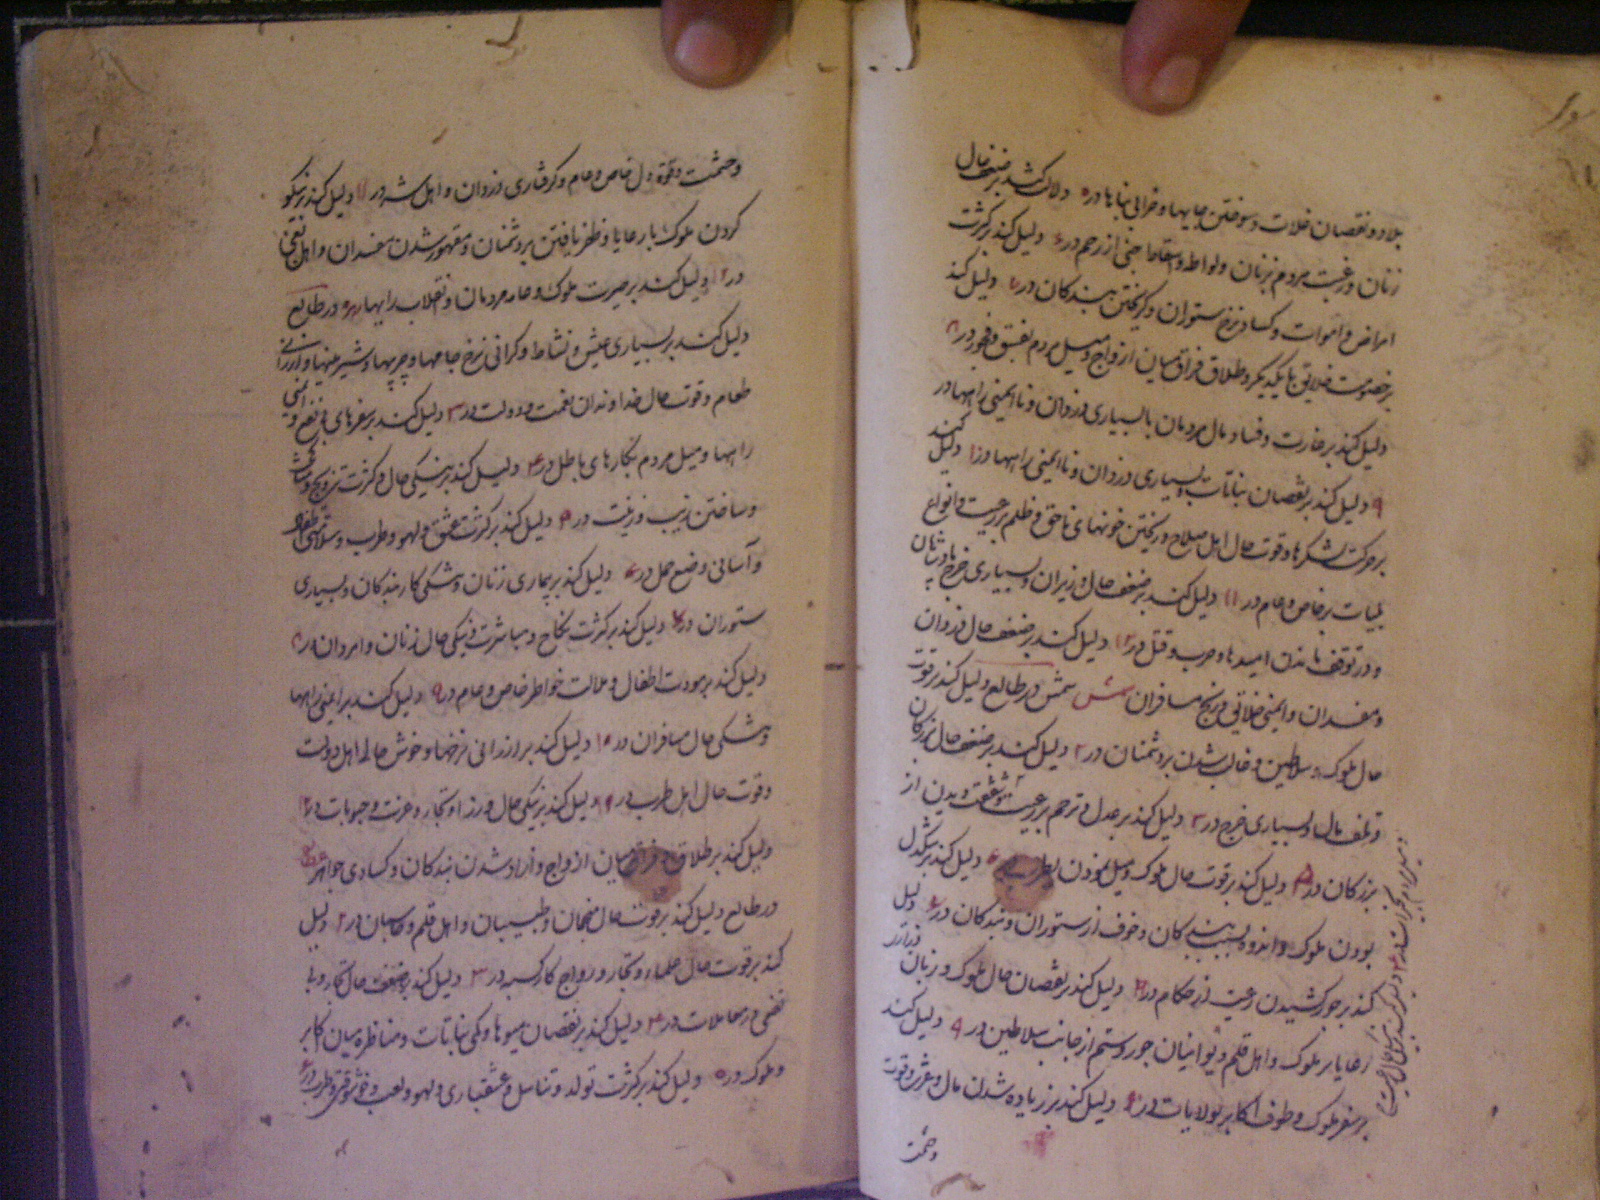 بلاد و نقصان غلات و سوختن جایها و خرابی بناها در ۵ دلالت کند بر ضعف حال
زنان و رغبت مردم بزنان و لواطه و اسقاط جنین از رحم در ۶ دلیل کند بر کثرت
امراض و اموات و کساد نرخ ستوران و گریختن بندکان در ۷ دلیل کند
بر خصومت خلایق با یکدیگر و طلاق فراق میان ازواج و میل مردم بفسق و فجور در ۸
دلیل کند بر غارت و فساد مال مردمان با بسیاری دزدان و ناایمنی راهها در
۹ دلیل کند بر نقصان نباتات و بسیاری دزدان و ناایمنی راهها در ۱۰ دلیل کند
بر حرکت لشکرها و قوت حال اهل صلاح و ریختن خونهای ناحق و ظلم بر رعیت و انواع
بلیات بر خاص و عام در ۱۱ دلیل کند بر ضعف حال وزیران و بسیاری خرج
و در توقف ماندن امیدها و حرب و قتل در ۱۲ دلیل کند بر ضعف حال دزدان
و مفسدان و ایمنی خلایق و رنج مسافران شمس شمس در طالع دلیل کند بر قوت
حال ملوک و سلاطین و غالب شدن بر دشمنان در ۲ دلیل کند بر ضعف حال بزرکان
و تلف مال و بسیاری خرج در ۳ دلیل کند بر عدل و ترحم بر رعیت و شفقت دیدن از
بزرکان در ۵ دلیل کند بر قوت حال ملوک و میل نمودن بطرب ۶ دلیل کند بر تنکدل
بودن ملوک و اندوه بسبب بندکان و خوف از ستوران و بندکان در ۷ دلیل
کند بر جور کشیدن رعیت از حکام در ۸ دلیل کند بر نقصان حال ملوک و زیان
رعایا بر ملوک و اهل قلم و دیوانیان جور و ستم از جانب سلاطین در ۹ دلیل کند
بر سفر ملوک و طوف اکابر بولایات در ۱۰ دلیل کند بر زیاده شدن مال و عز و قوت
وحشمت
وحشمت و قوة دل خاص و عام و کرفتاری دزدان و اهل شر در ۱۱ دلیل کند بر نیکو
کردن ملوک با رعایا و ظفر یافتن بر دشمنان و مقهور شدن مفسدان و اهل
در ۱۲ دلیل کند بر حیرت ملوک و عامه مردمان و انقلاب رایها زهره در طالع
دلیل کند بر بسیاری عیش و نشاط و کرانی نرخ جامها و چربیها و شیرینیها و ارزانی
طعام و قوت حال خداوندان نعمت و دولت در ۳ دلیل کند بر سفرهای با نفع و ایمنی
راهها و میل مردم بکارهای باطل در ۴ دلیل کند بر نیکی حال و کثرت تزویج
و ساختن زیب و زینت در ۵ دلیل کند بر کثرت عشق و لهو و طرب و سلامتی اطفال
و آسانی وضع حمل در ۶ دلیل کند بر بیماری زنان و سبکی کار بندکان و بسیاری
ستوران در ۷ دلیل کند بر کثرت نکاح و مباشرت و نیکی حال زنان و امردان در ۸
دلیل کند بر موت اطفال و ملالت خواطر خاص و عام در ۹ دلیل کند بر ایمنی راهها
و سبکی حال مسافران در ۱۰ دلیل کند بر ارزانی نرخها و خوش حالی اهل دولت
و قوت حال اهل طرب در ۱۱ دلیل کند بر نیکی حال وزرا و تجار و عزت و حبوبات در ۱۲
دلیل کند بر طلاق و فراق میان ازواج و آزاد شدن بندکان و کسادی جواهر عطارد
در طالع دلیل کند بر قوت حال منجمان و طبیبان و اهل قلم و کاتبان در ۲ دلیل
کند بر قوت حال علما و تجار و رواج کار کسبه در ۳ دلیل کند بر ضعف حال تجار و بی
نفعی در معاملات در ۴ دلیل کند بر نقصان میوها و کمی نباتات و مناظره میان اکابر
و ملوک در ۵ دلیل کند بر کثرت تولد و تناسل و عشقبازی و لهو و لعب و خوشوقتی و طرب در ۶